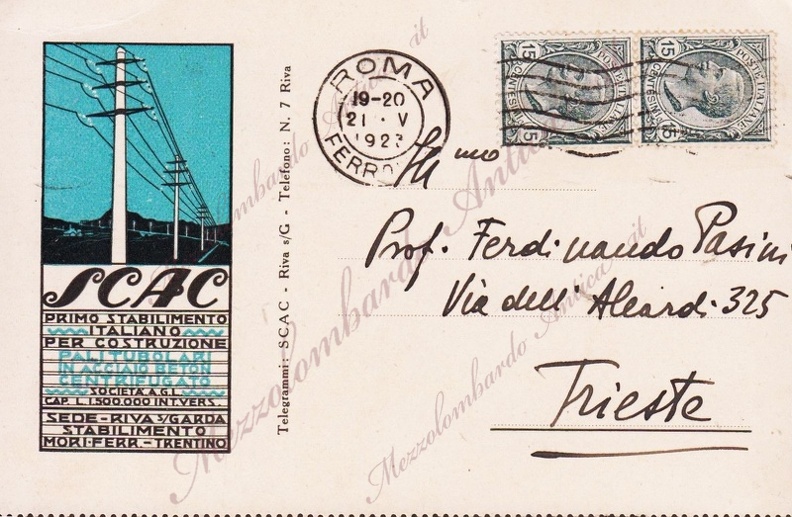 SCAC
PRIMO STABILIMENTO
ITALIANO
PER COSTRUZIONE
PALI TUBOLARI
IN ACCIAIO BETON
CENTRIFUGATO
SOCIETÀ A G.L.
CAP. L. 1.500.000 INT. VERS.
SEDE-RIVA S/GARDA
STABILIMENTO
MORI-FERR.-TRENTINO
Telegrammi: SCAC - Riva s/G - Telefono: N. 7 Riva
ROMA
19-20
21 · V
1923
FERROV
15 POSTE ITALIANE 15
CENTESIMI
15 POSTE ITALIANE 15
CENTESIMI
Ill mo
Prof. Ferdinando Pasini
Via dell' Aleardi 325
Trieste
Mezzolombardo Antica.it
Mezzolombardo Antica.it